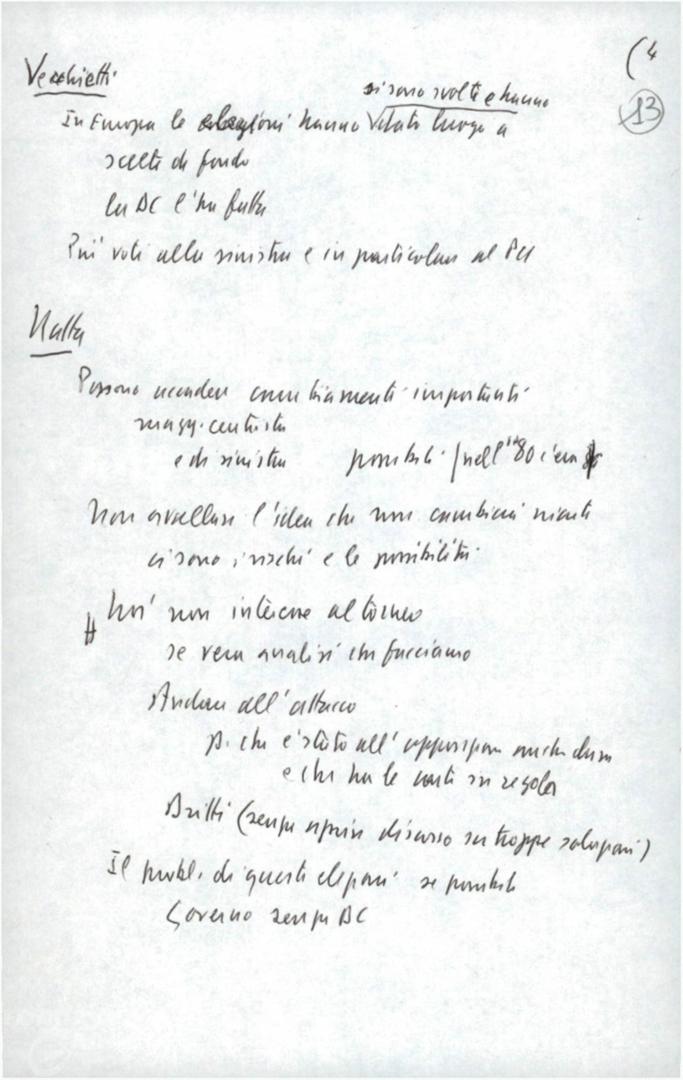 (4
13
Vecchietti
si sono svolte e hanno
In Europa le elezioni hanno dato luogo a
scelte di fondo
la DC l'ha fatta
Più voti alla sinistra e in particolare al PCI
Natta
Possono accadere cambiamenti importanti
magg. centrista
e di sinistra possibili (nell'80 c'era
Non avallare l'idea che non cambierà niente
ci sono i rischi e le possibilità
Noi non interesse al torneo
se vera analisi che facciamo
Andare all'attacco
P. che è stato all'opposizione anche dura
e che ha le carte in regola
Diritti (senza aprire discorso su troppe soluzioni)
Il probl. di queste elezioni se possibile
Governo senza DC